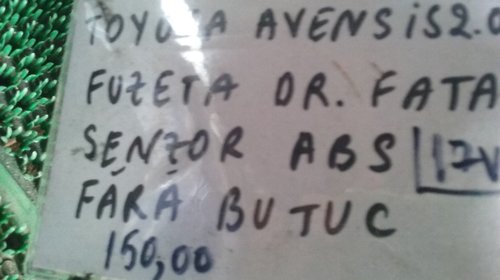 TOYOTA AVENSIS 2.0
FUZETA DR. FATA
SENZOR ABS 17V
FĂRĂ BUTUC
150,00